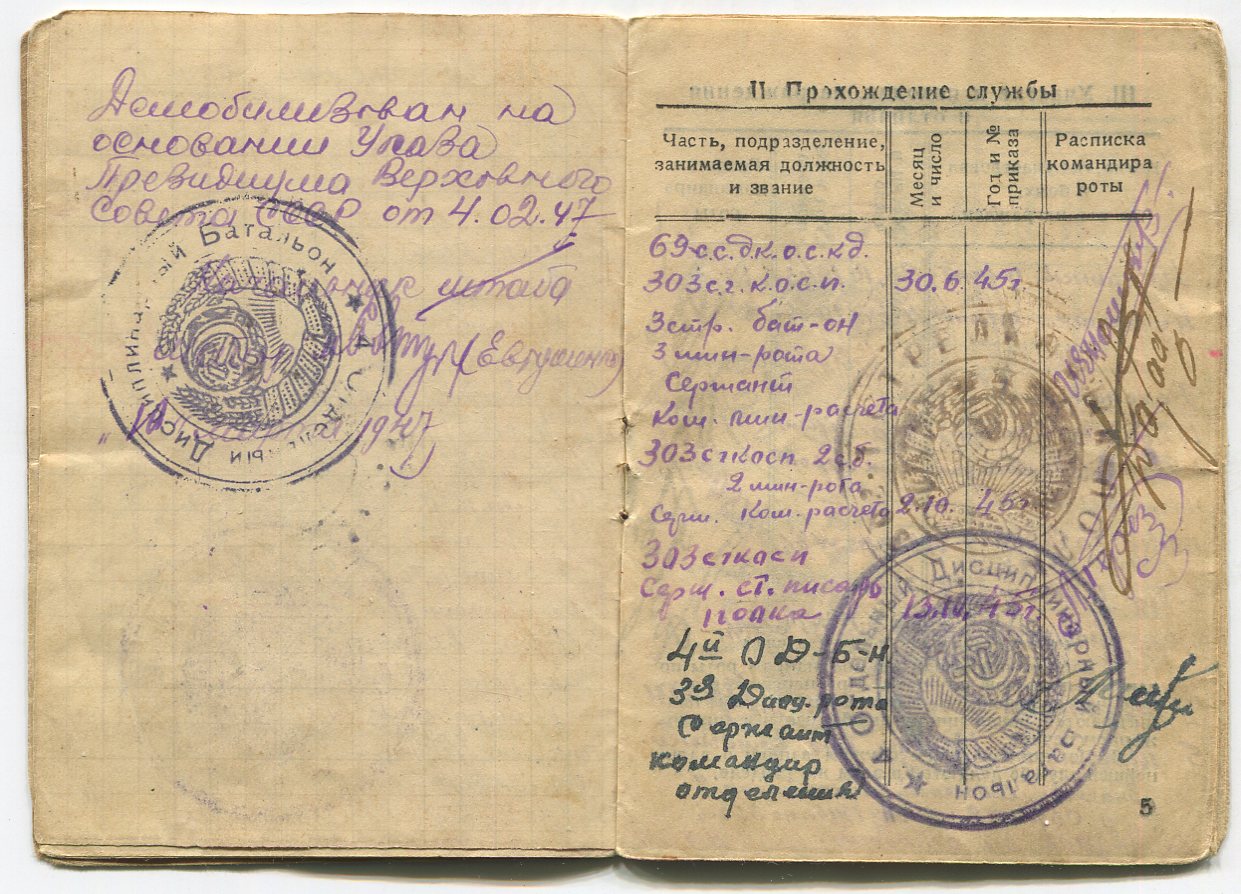 Демобилизован на
основании Указа
Президиума Верховного
Совета СССР от 4.02.47
Начальник штаба
(Евтушенко)
1947
4 Отдельный Дисциплинарный Батальон
II. Прохождение службы
Часть, подразделение, занимаемая должность и звание
Месяц и число
Год и № приказа
Расписка командира роты
69 с.с.д.к.о.с.к.д.
303 с.г.к.о.с.п. 30.6 45г.
3 стр. бат-он
3 мин-рота
Сержант
Ком. мин-расчета
303 сгкосп 2 с.б.
2 мин-рота
Серж. Ком. расчета 2.10. 45г.
303 сгкасп
Серж. ст. писарь
полка 13.10. 45г.
4й О Д-Б-Н
3я Дисц. рота
Сержант
командир
отделения
4 Отдельный Дисциплинарный Батальон
5